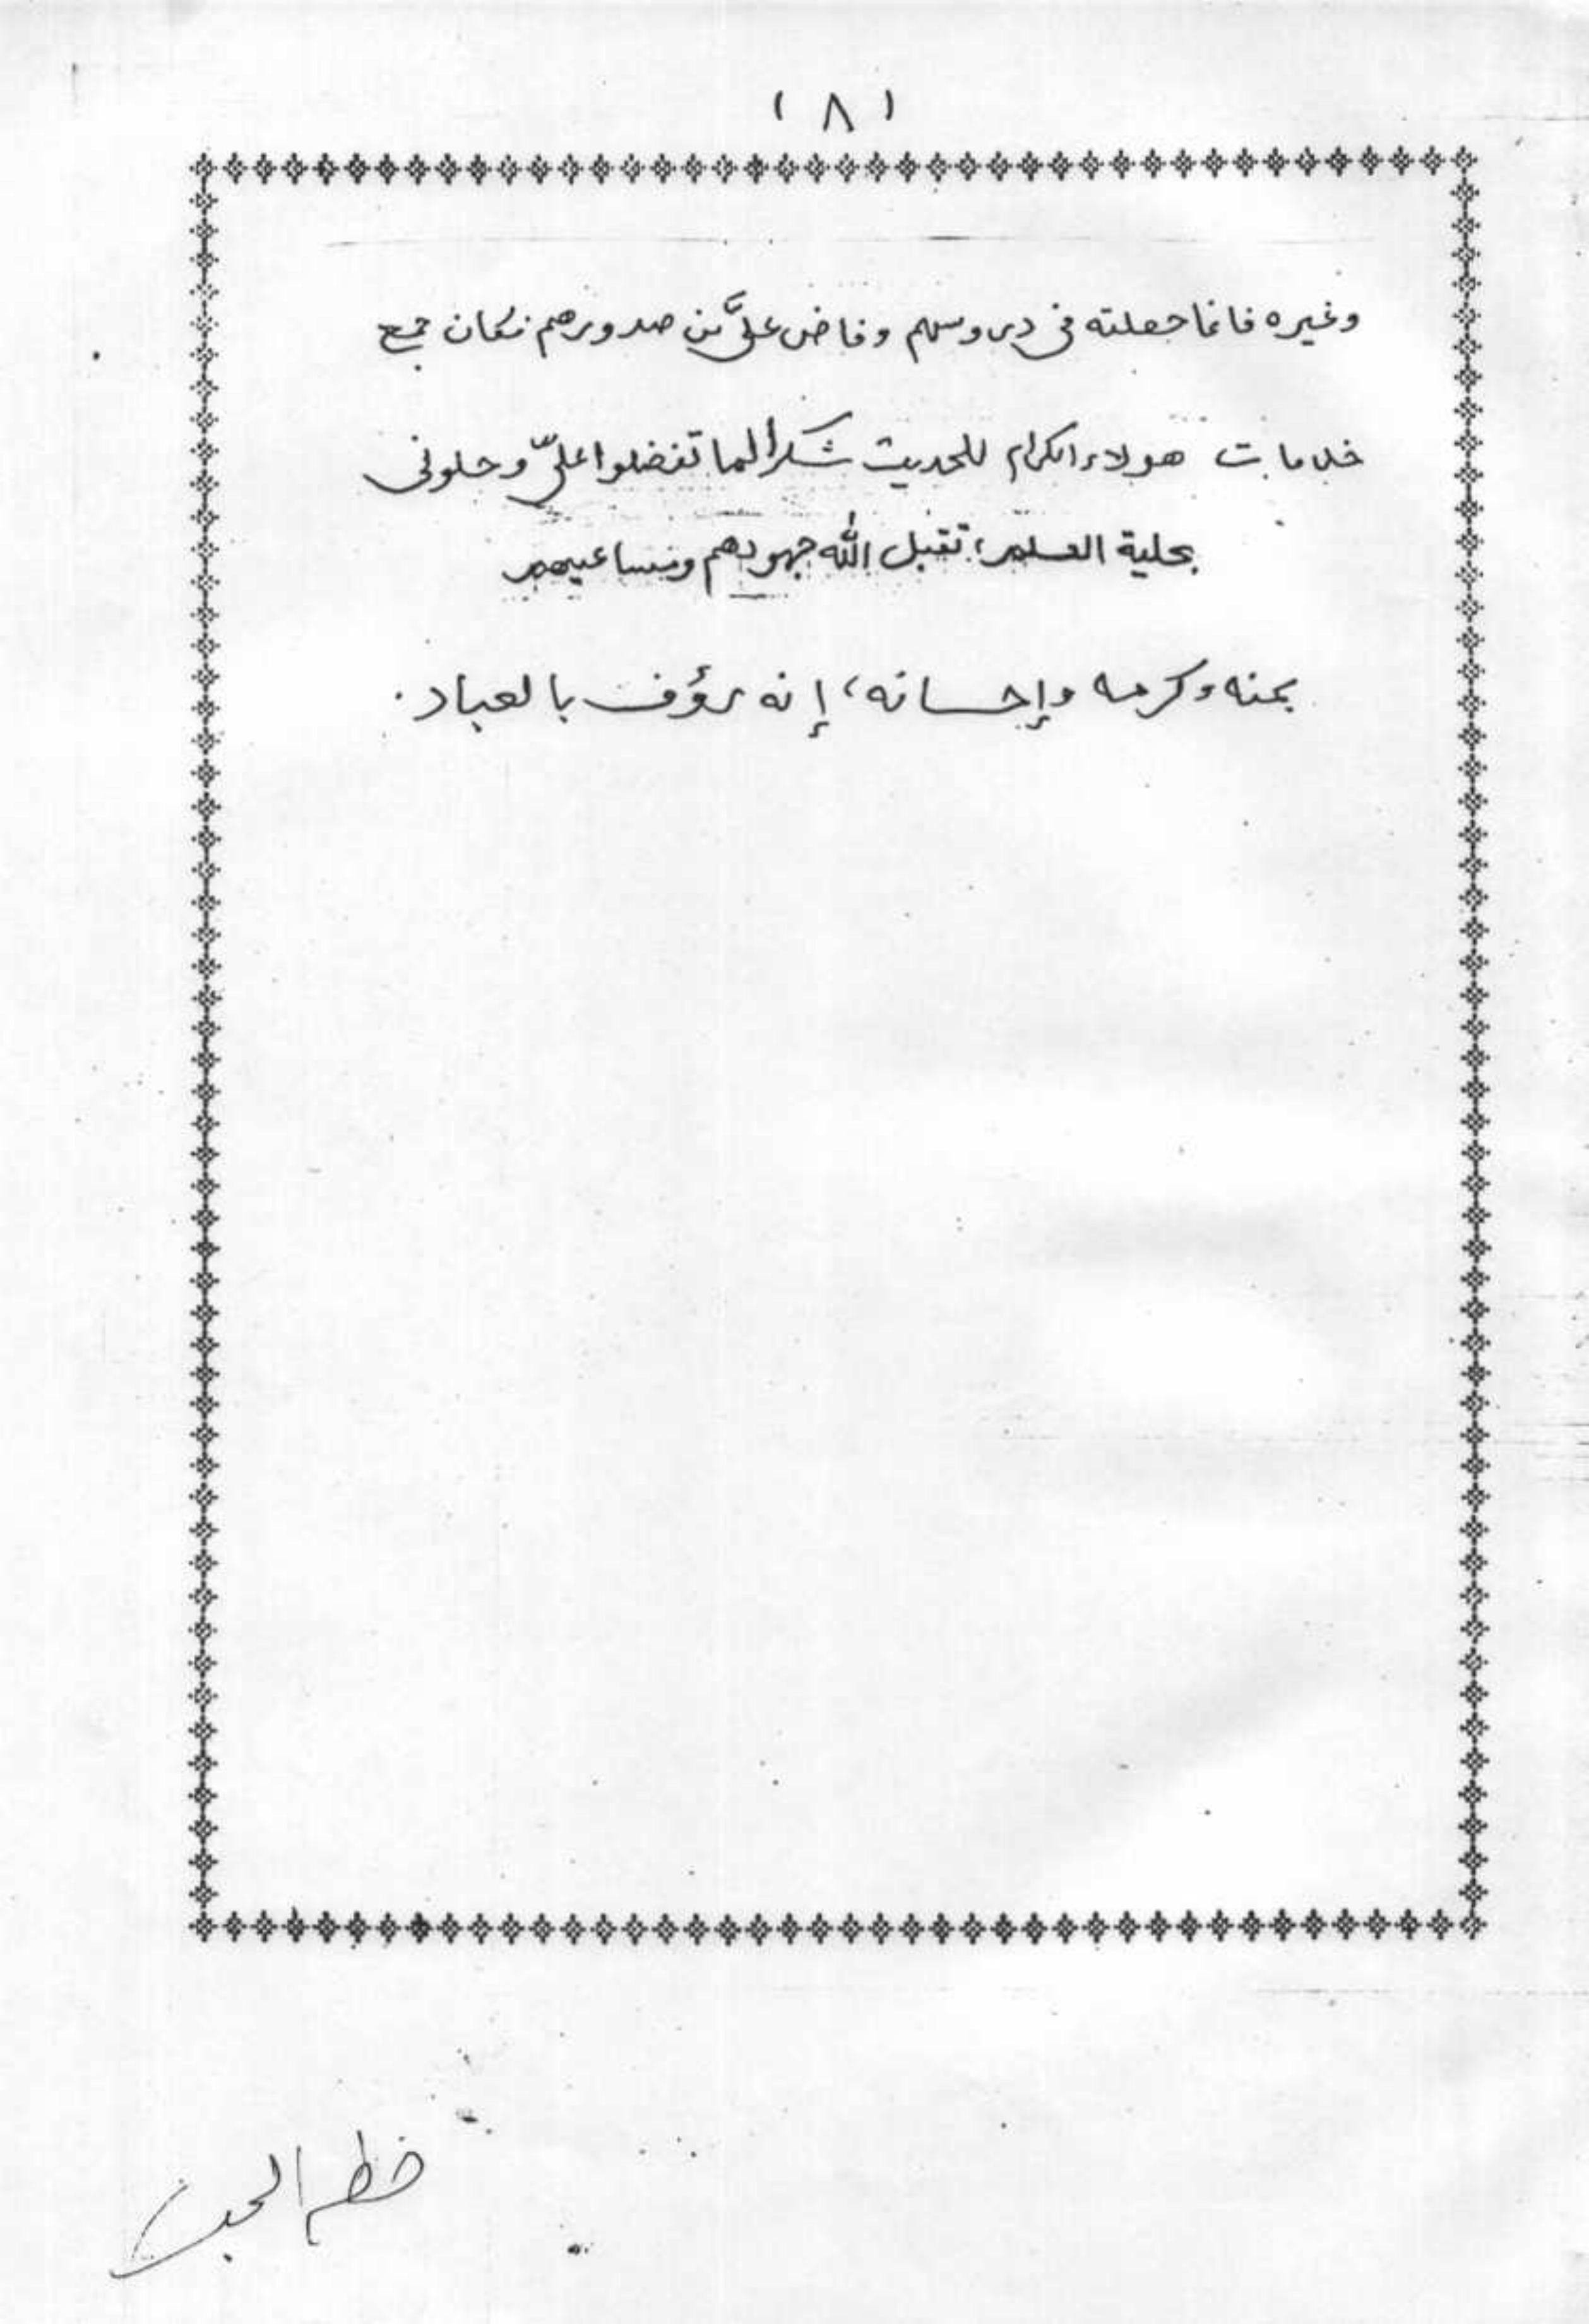 (٨)
وغيره فانما جعلته في دروسهم وفاض عليَّ من صدورهم فكان جمع
خدمات هولاء الكرام للحديث شكراً لما تفضلوا عليّ وحلوني
بحلية العلم، تقبل الله جهودهم ومساعيهم
بمنه وكرمه وإحسانه، إنه رؤف بالعباد.